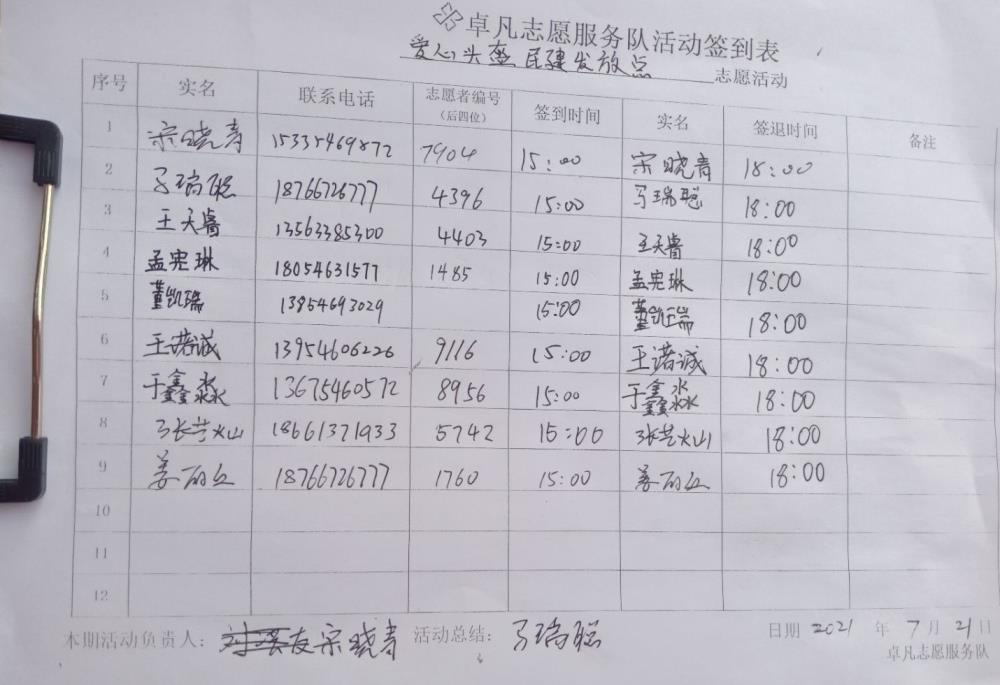 卓凡志愿服务队活动签到表
爱心头盔民建发放点 志愿活动
序号 实名 联系电话 志愿者编号（后四位） 签到时间 实名 签退时间 备注
1 宋晓青 15335469872 7904 15:00 宋晓青 18:00
2 马瑞聪 18766726777 4396 15:00 马瑞聪 18:00
3 王天睿 13563385300 4403 15:00 王天睿 18:00
4 孟宪琳 18054631577 1485 15:00 孟宪琳 18:00
5 董凯瑞 13854693029 15:00 董凯瑞 18:00
6 王诺诚 13954606226 9116 15:00 王诺诚 18:00
7 于鑫淼 13675460572 8956 15:00 于鑫淼 18:00
8 张艺火山 18661371933 5742 15:00 张艺火山 18:00
9 姜丽 18766726777 1760 15:00 姜丽 18:00
10
11
12
本期活动负责人： 友宋晓青 活动总结： 马瑞聪 日期 2021 年 7 月 21 日
卓凡志愿服务队